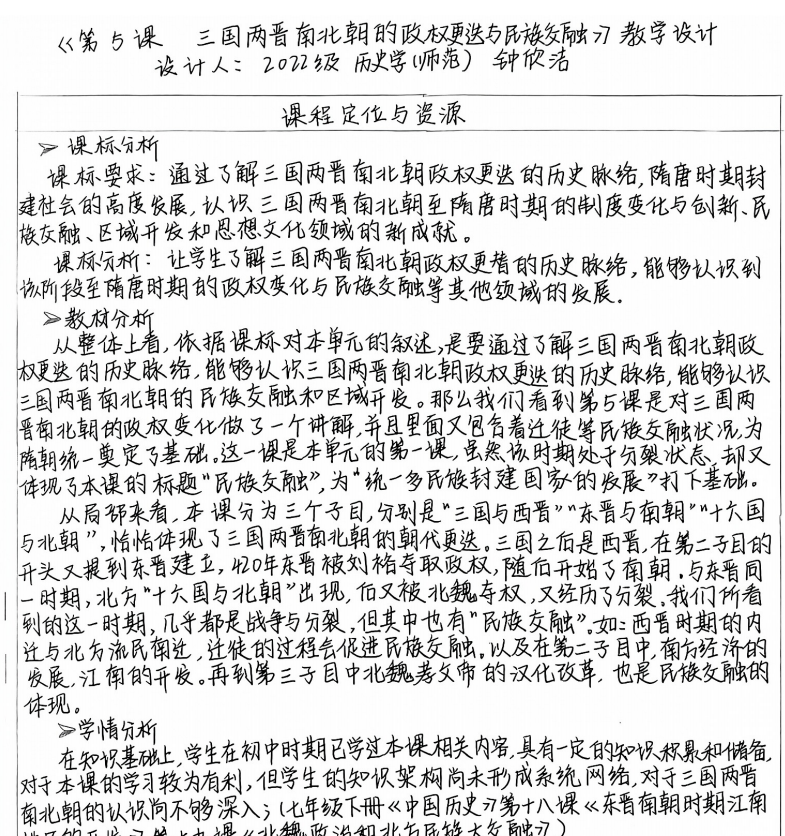 《第5课 三国两晋南北朝的政权更迭与民族交融》教学设计
设计人：2022级 历史学(师范) 钟欣洁
课程定位与资源
➢ 课标分析
课标要求：通过了解三国两晋南北朝政权更迭的历史脉络,隋唐时期封
建社会的高度发展,认识三国两晋南北朝至隋唐时期的制度变化与创新、民
族交融、区域开发和思想文化领域的新成就。
课标分析：让学生了解三国两晋南北朝政权更替的历史脉络,能够认识到
该阶段至隋唐时期的政权变化与民族交融等其他领域的发展.
➢教材分析
从整体上看,依据课标对本单元的叙述,是要通过了解三国两晋南北朝政
权更迭的历史脉络,能够认识三国两晋南北朝政权更迭的历史脉络,能够认识
三国两晋南北朝的民族交融和区域开发。那么我们看到第5课是对三国两
晋南北朝的政权变化做了一个讲解,并且里面又包含着迁徙等民族交融状况,为
隋朝统一奠定了基础。这一课是本单元的第一课,虽然该时期处于分裂状态,却又
体现了本课的标题“民族交融”,为“统一多民族封建国家的发展”打下基础。
从局部来看,本课分为三个子目,分别是“三国与西晋”“东晋与南朝”“十六国
与北朝”,恰恰体现了三国两晋南北朝的朝代更迭。三国之后是西晋,在第二子目的
开头又提到东晋建立,420年东晋被刘裕夺取政权,随后开始了南朝.与东晋同
一时期,北方“十六国与北朝”出现,后又被北魏夺权,又经历了分裂.我们所看
到的这一时期,几乎都是战争与分裂,但其中也有“民族交融”.如:西晋时期的内
迁与北方流民南迁,迁徙的过程会促进民族交融.以及在第二子目中,南方经济的
发展,江南的开发。再到第三子目中北魏孝文帝的汉化改革,也是民族交融的
体现。
➢学情分析
在知识基础上,学生在初中时期已学过本课相关内容,具有一定的知识积累和储备,
对于本课的学习较为有利,但学生的知识架构尚未形成系统网络,对于三国两晋
南北朝的认识尚不够深入;(七年级下册《中国历史》第十八课《东晋南朝时期江南